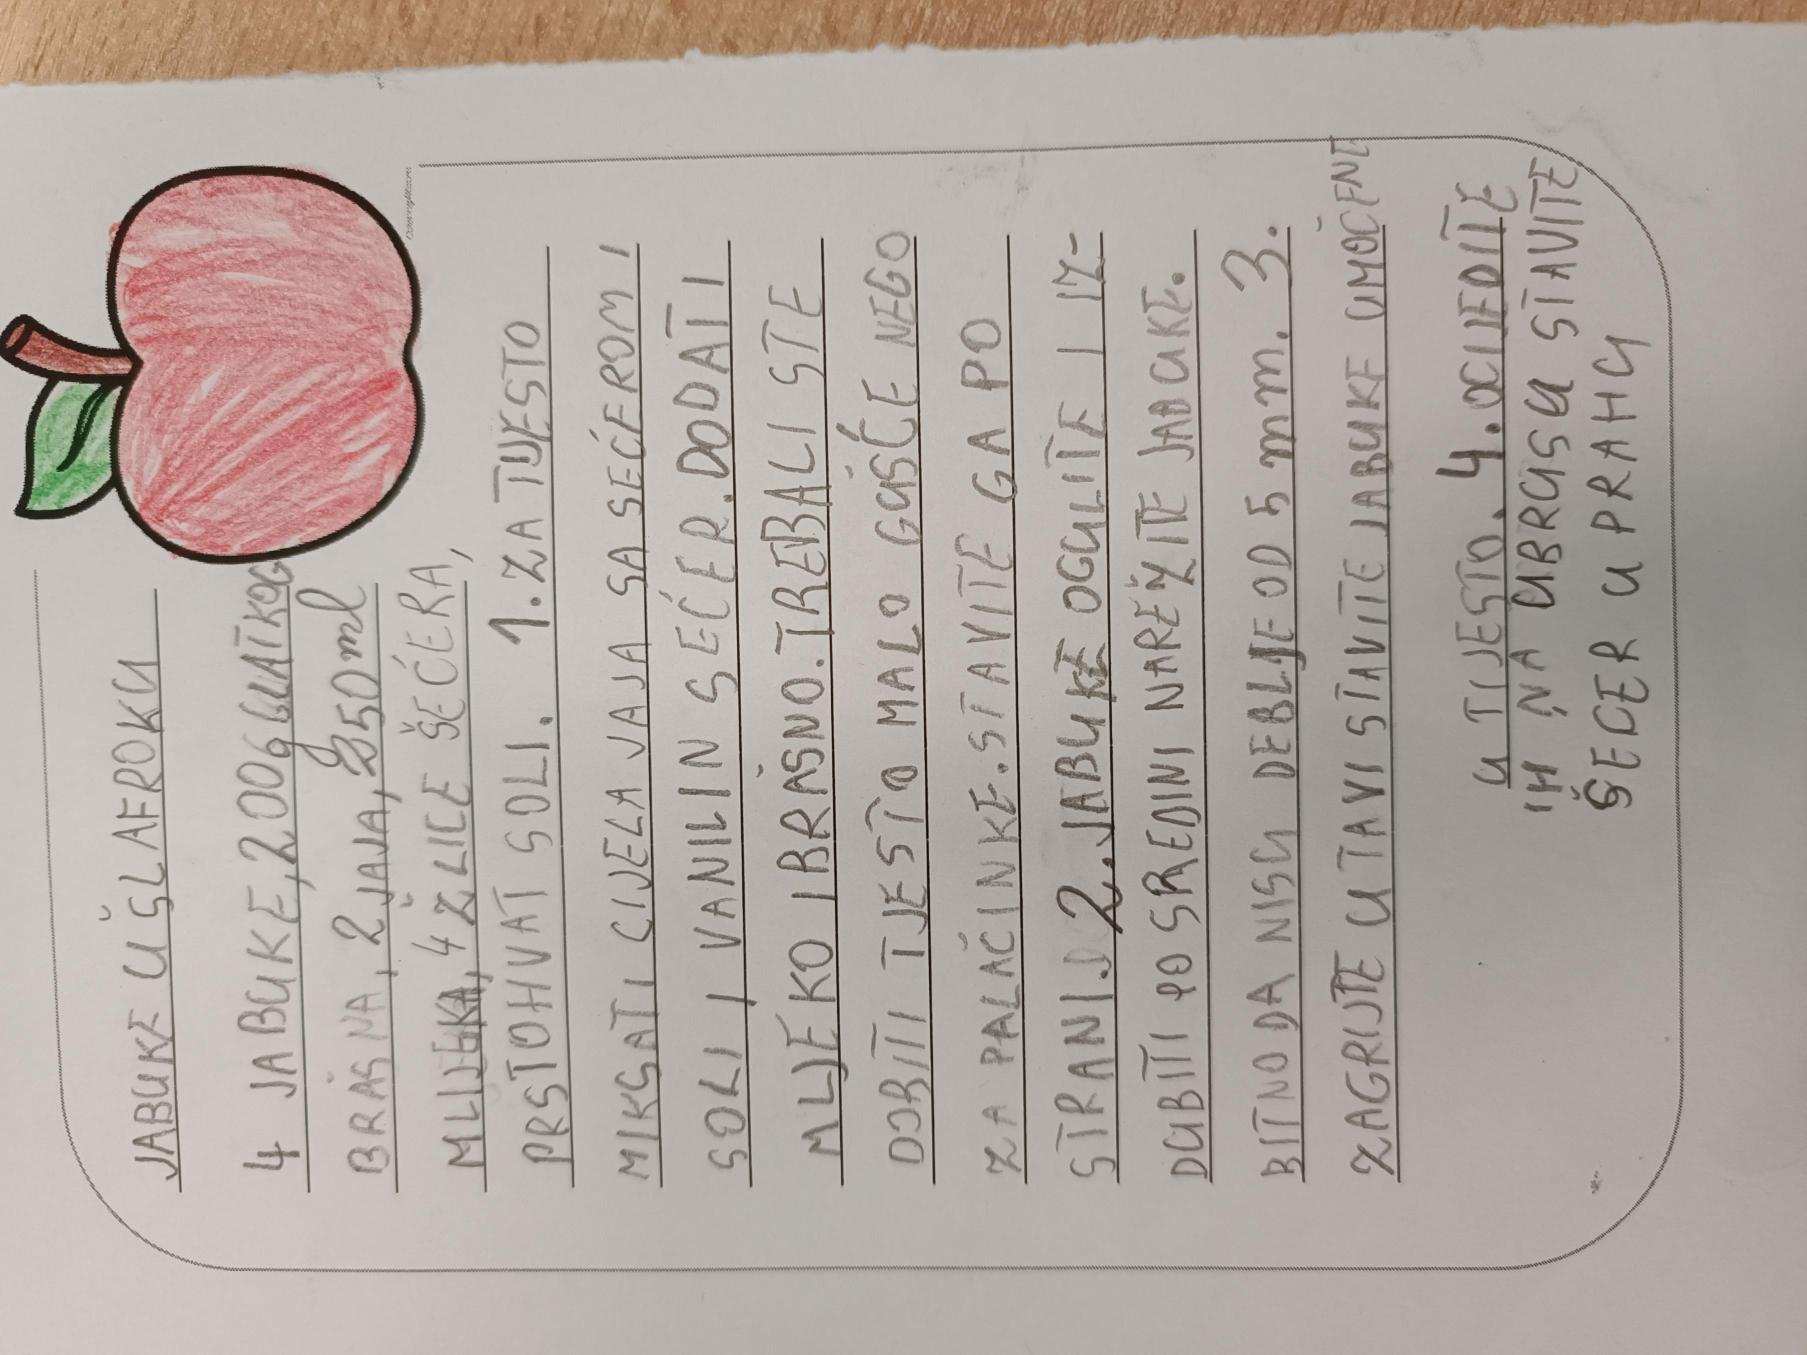 JABUKE U ŠLAFROKU
4 JABUKE, 200g GLATKOG
BRAŠNA, 2 JAJA, 250ml
MLIJEKA, 4 ŽLICE ŠEĆERA,
PRSTOHVAT SOLI. 1. ZA TIJESTO
MIKSATI CIJELA JAJA SA SEĆEROM I
SOLI I VANILIN SEĆER. DODATI
MLJEKO I BRAŠNO. TREBALI STE
DOBITI TJESTO MALO GUŠĆE NEGO
ZA PALAČINKE. STAVITE GA PO
STRANI. 2. JABUKE OGULITE I IZ-
DUBITI PO SREDINI NAREŽITE JABUKE.
BITNO DA NISU DEBLJE OD 5 mm. 3.
ZAGRIJTE U TAVI STAVITE JABUKE UMOČENE
U TIJESTO. 4. OCIJEDITE
IH NA UBRUSU STAVITE
ŠEĆER U PRAHU